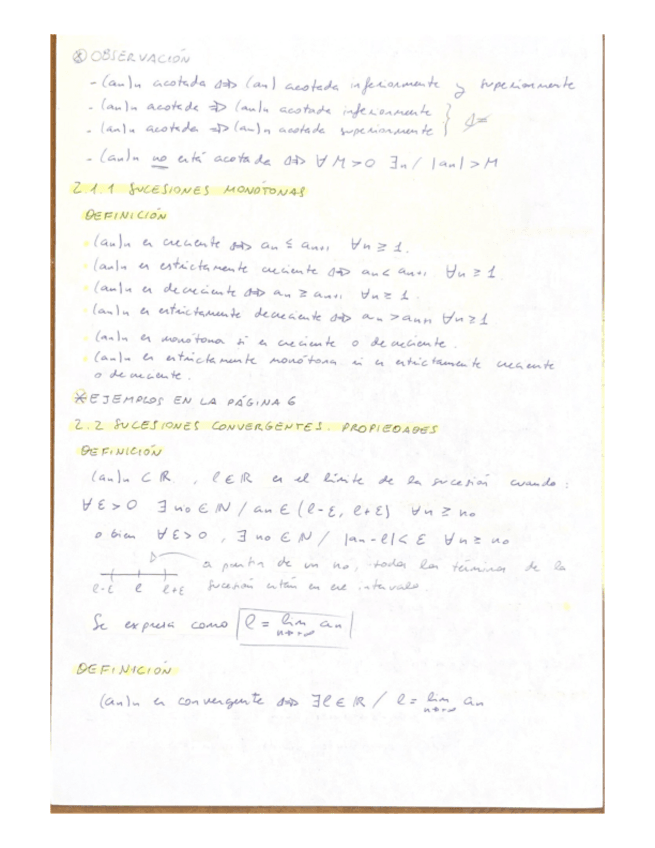 ⊛ OBSERVACIÓN
- (an)n acotada ⇔ (an) acotada inferiormente y superiormente
- (an)n acotada ⇒ (an)n acotada inferiormente
- (an)n acotada ⇒ (an)n acotada superiormente } ⇍
- (an)n no está acotada ⇔ ∀M>0 ∃n / |an|>M
2.1.1 SUCESIONES MONÓTONAS
DEFINICIÓN
· (an)n es creciente ⇔ an ≤ an+1 ∀n ≥ 1.
· (an)n es estrictamente creciente ⇔ an < an+1 ∀n ≥ 1
· (an)n es decreciente ⇔ an ≥ an+1 ∀n ≥ 1.
· (an)n es estrictamente decreciente ⇔ an > an+1 ∀n ≥ 1
· (an)n es monótona si es creciente o decreciente.
· (an)n es estrictamente monótona si es estrictamente creciente
o decreciente.
* EJEMPLOS EN LA PÁGINA 6
2.2 SUCESIONES CONVERGENTES. PROPIEDADES
DEFINICIÓN
(an)n ⊂ ℝ, l ∈ ℝ es el límite de la sucesión cuando:
∀ε>0 ∃ no ∈ ℕ / an ∈ (l-ε, l+ε) ∀n ≥ no
o bien ∀ε>0, ∃ no ∈ ℕ / |an-l| < ε ∀n ≥ no
a partir de un no, todos los términos de la
l-ε l l+ε sucesión están en ese intervalo
Se expresa como l = lim n→+∞ an
DEFINICIÓN
(an)n es convergente ⇔ ∃l ∈ ℝ / l = lim n→+∞ an